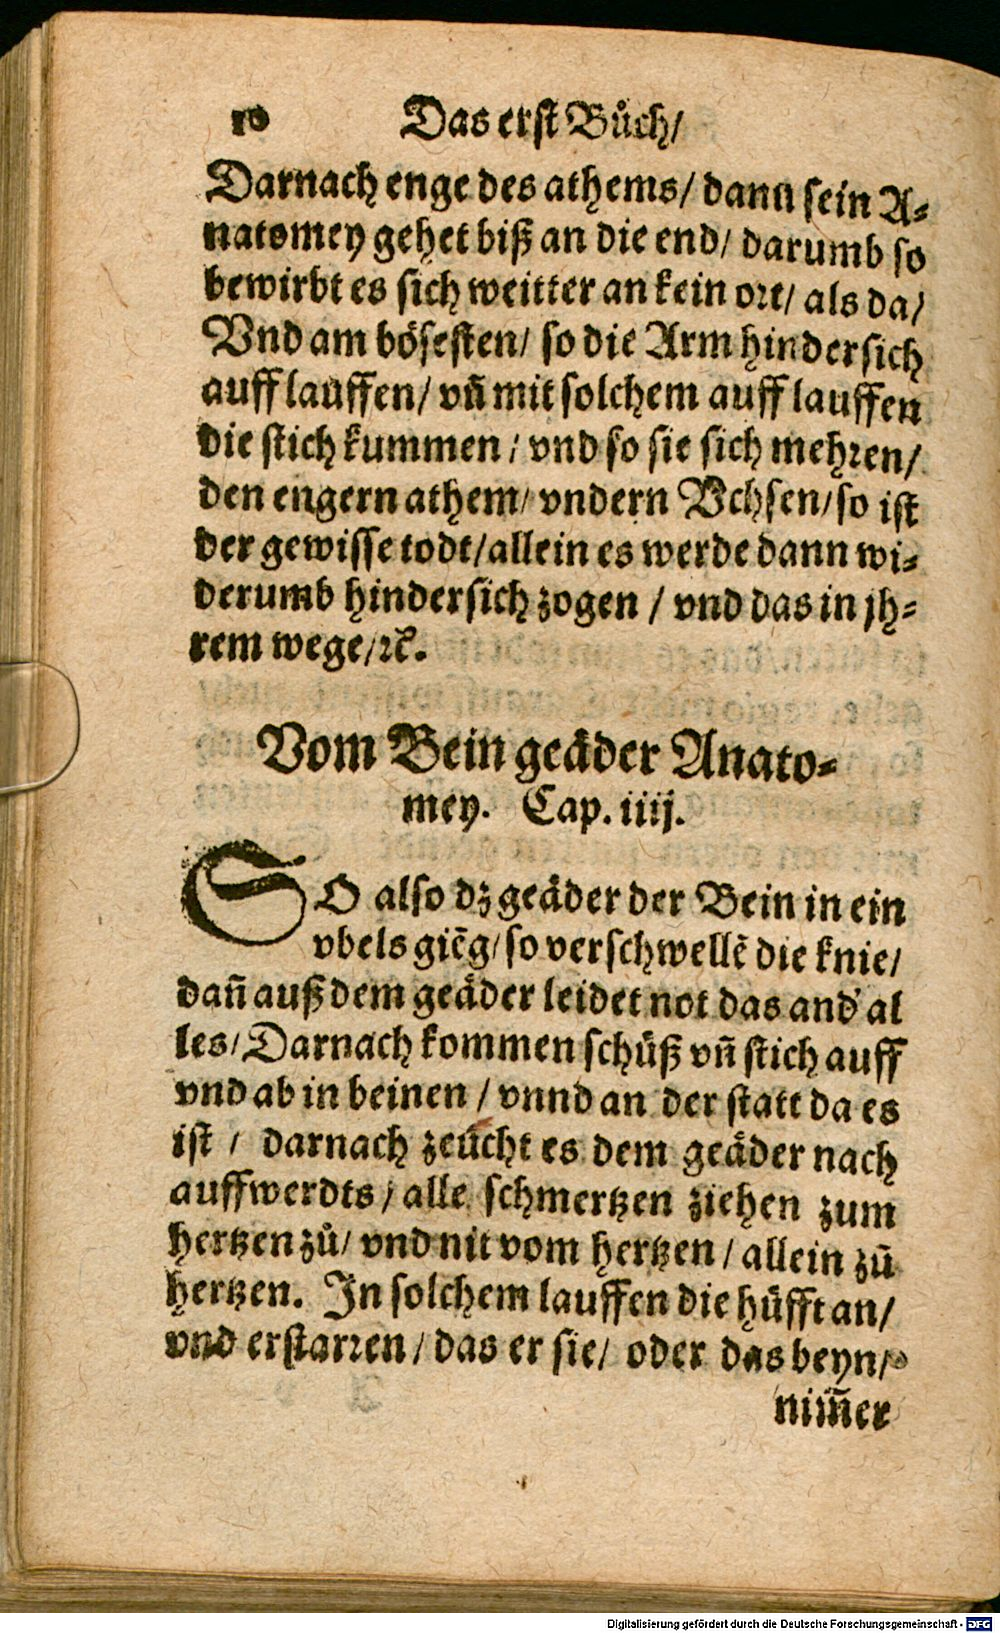 10 Das erst Bůch/
Darnach enge des athems/ dann sein A-
natomey gehet biß an die end/ darumb so
bewirbt es sich weitter an kein ort/ als da/
Vnd am bösesten/ so die Arm hindersich
auff lauffen/ vñ mit solchem auff lauffen
die stich kummen/ vnd so sie sich mehren/
den engern athem/ vndern Vchsen/ so ist
der gewisse todt/ allein es werde dann wi-
derumb hindersich zogen / vnd das in jh-
rem wege/ ꝛc̃.
Vom Bein geäder Anato-
mey. Cap. iiij.
SO also dz geäder der Bein in ein
vbels giẽg/ so verschwellẽ die knie/
dañ auß dem geäder leidet not das and' al
les/ Darnach kommen schüß vñ stich auff
vnd ab in beinen / vnnd an der statt da es
ist / darnach zeücht es dem geäder nach
auffwerdts/ alle schmertzen ziehen zum
hertzen zů/ vnd nit vom hertzen / allein zů
hertzen. In solchem lauffen die hüfft an/
vnd erstarren / das er sie/ oder das beyn/
nim̃er
Digitalisierung gefördert durch die Deutsche Forschungsgemeinschaft - DFG